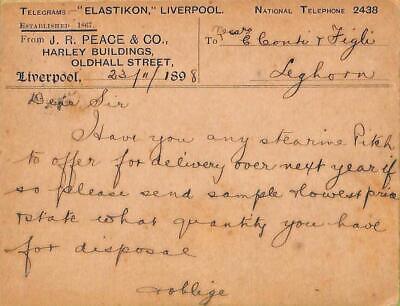 TELEGRAMS "ELASTIKON," LIVERPOOL. NATIONAL TELEPHONE 2438
ESTABLISHED 1867.
From J. R. PEACE & CO., To Messrs E Conti & Figli
HARLEY BUILDINGS,
OLDHALL STREET, Leghorn
Liverpool, 23/11/1898
Dear Sir
Have you any stearine Pitch
to offer for delivery over next year if
so please send sample & lowest price
& state what quantity you have
for disposal
& oblige